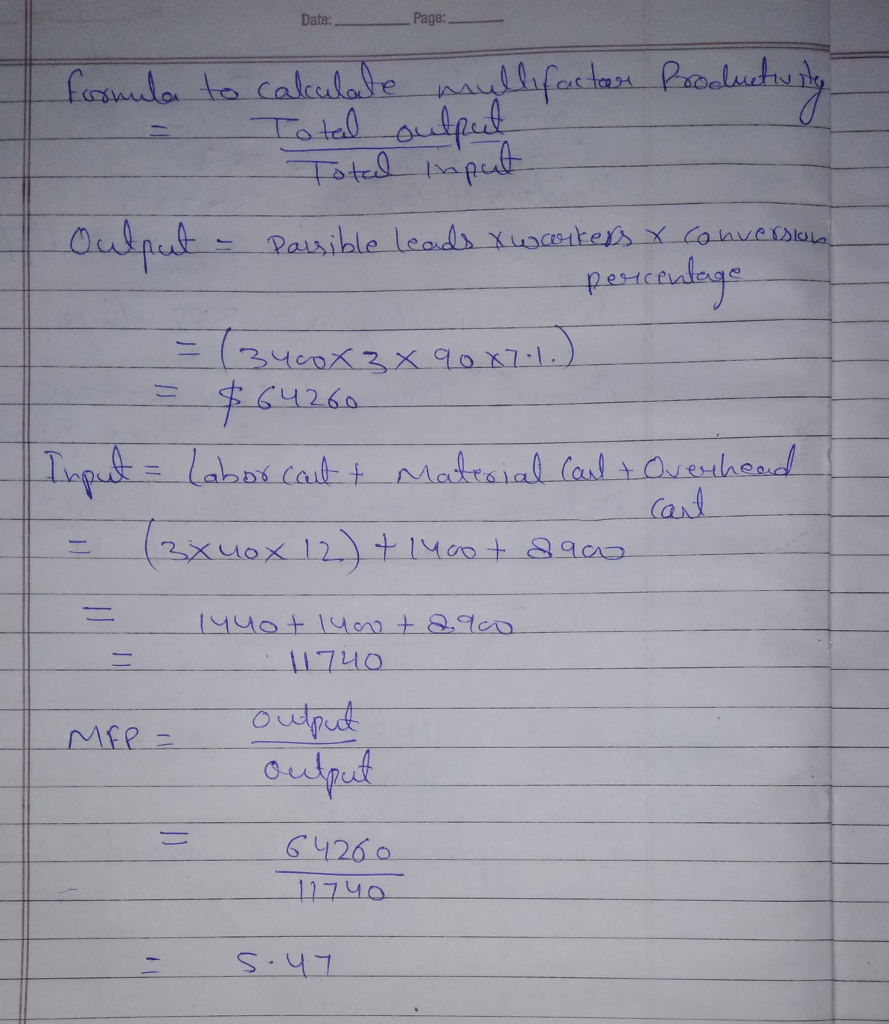 Date: ________ Page: ________
Formula to calculate multifactor Productivity
= Total output
Total input
Output = Possible leads x workers x conversion
percentage
= (3400 x 3 x 90 x 7.1.)
= $ 64260
Input = Labor cost + Material Cost + Overhead
Cost
= (3x40x 12) + 1400 + 8900
= 1440 + 1400 + 8900
= 11740
MFP = output
output
= 64260
11740
= 5.47